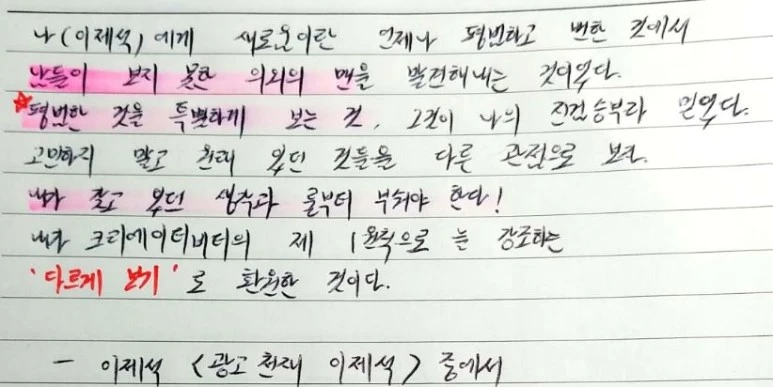 나(이제석)에게 새로움이란 언제나 평범하고 뻔한 것에서
남들이 보지 못한 의외의 면을 발견해내는 것이었다.
평범한 것을 특별하게 보는 것, 그것이 나의 진검승부라 믿었다.
고민하지 말고 원래 있던 것들을 다른 관점으로 보라.
내가 갖고 있던 생각과 룰부터 부숴야 한다!
내가 크리에이티비티의 제 1원칙으로 늘 강조하는
'다르게 보기'로 환원한 것이다.
- 이제석 <광고천재 이제석> 중에서